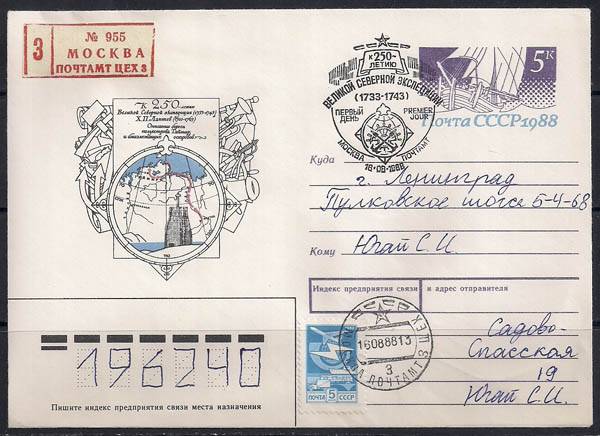 З
№ 955
МОСКВА
ПОЧТАМТ ЦЕХ 3
К 250-летию
Великой Северной экспедиции (1733-1743)
Х.П. Лаптев (1700-1763)
Описание берега
полуострова Таймыр
и близлежащих островов
К 250-ЛЕТИЮ
ВЕЛИКОЙ СЕВЕРНОЙ ЭКСПЕДИЦИИ
(1733-1743)
ПЕРВЫЙ ДЕНЬ
PREMIER JOUR
МОСКВА ПОЧТАМТ
16-08-1988
5К
ПОЧТА СССР 1988
Куда г. Ленинград
Пулковское шоссе 5-4-68
Кому Югай С.И.
Индекс предприятия связи и адрес отправителя
Садово-
Спасская
19
Югай С.И.
СССР
16088813
МОСКВА ПОЧТАМТ 3 ЦЕХ
3
ПОЧТА 5 СССР
196240
Пишите индекс предприятия связи места назначения